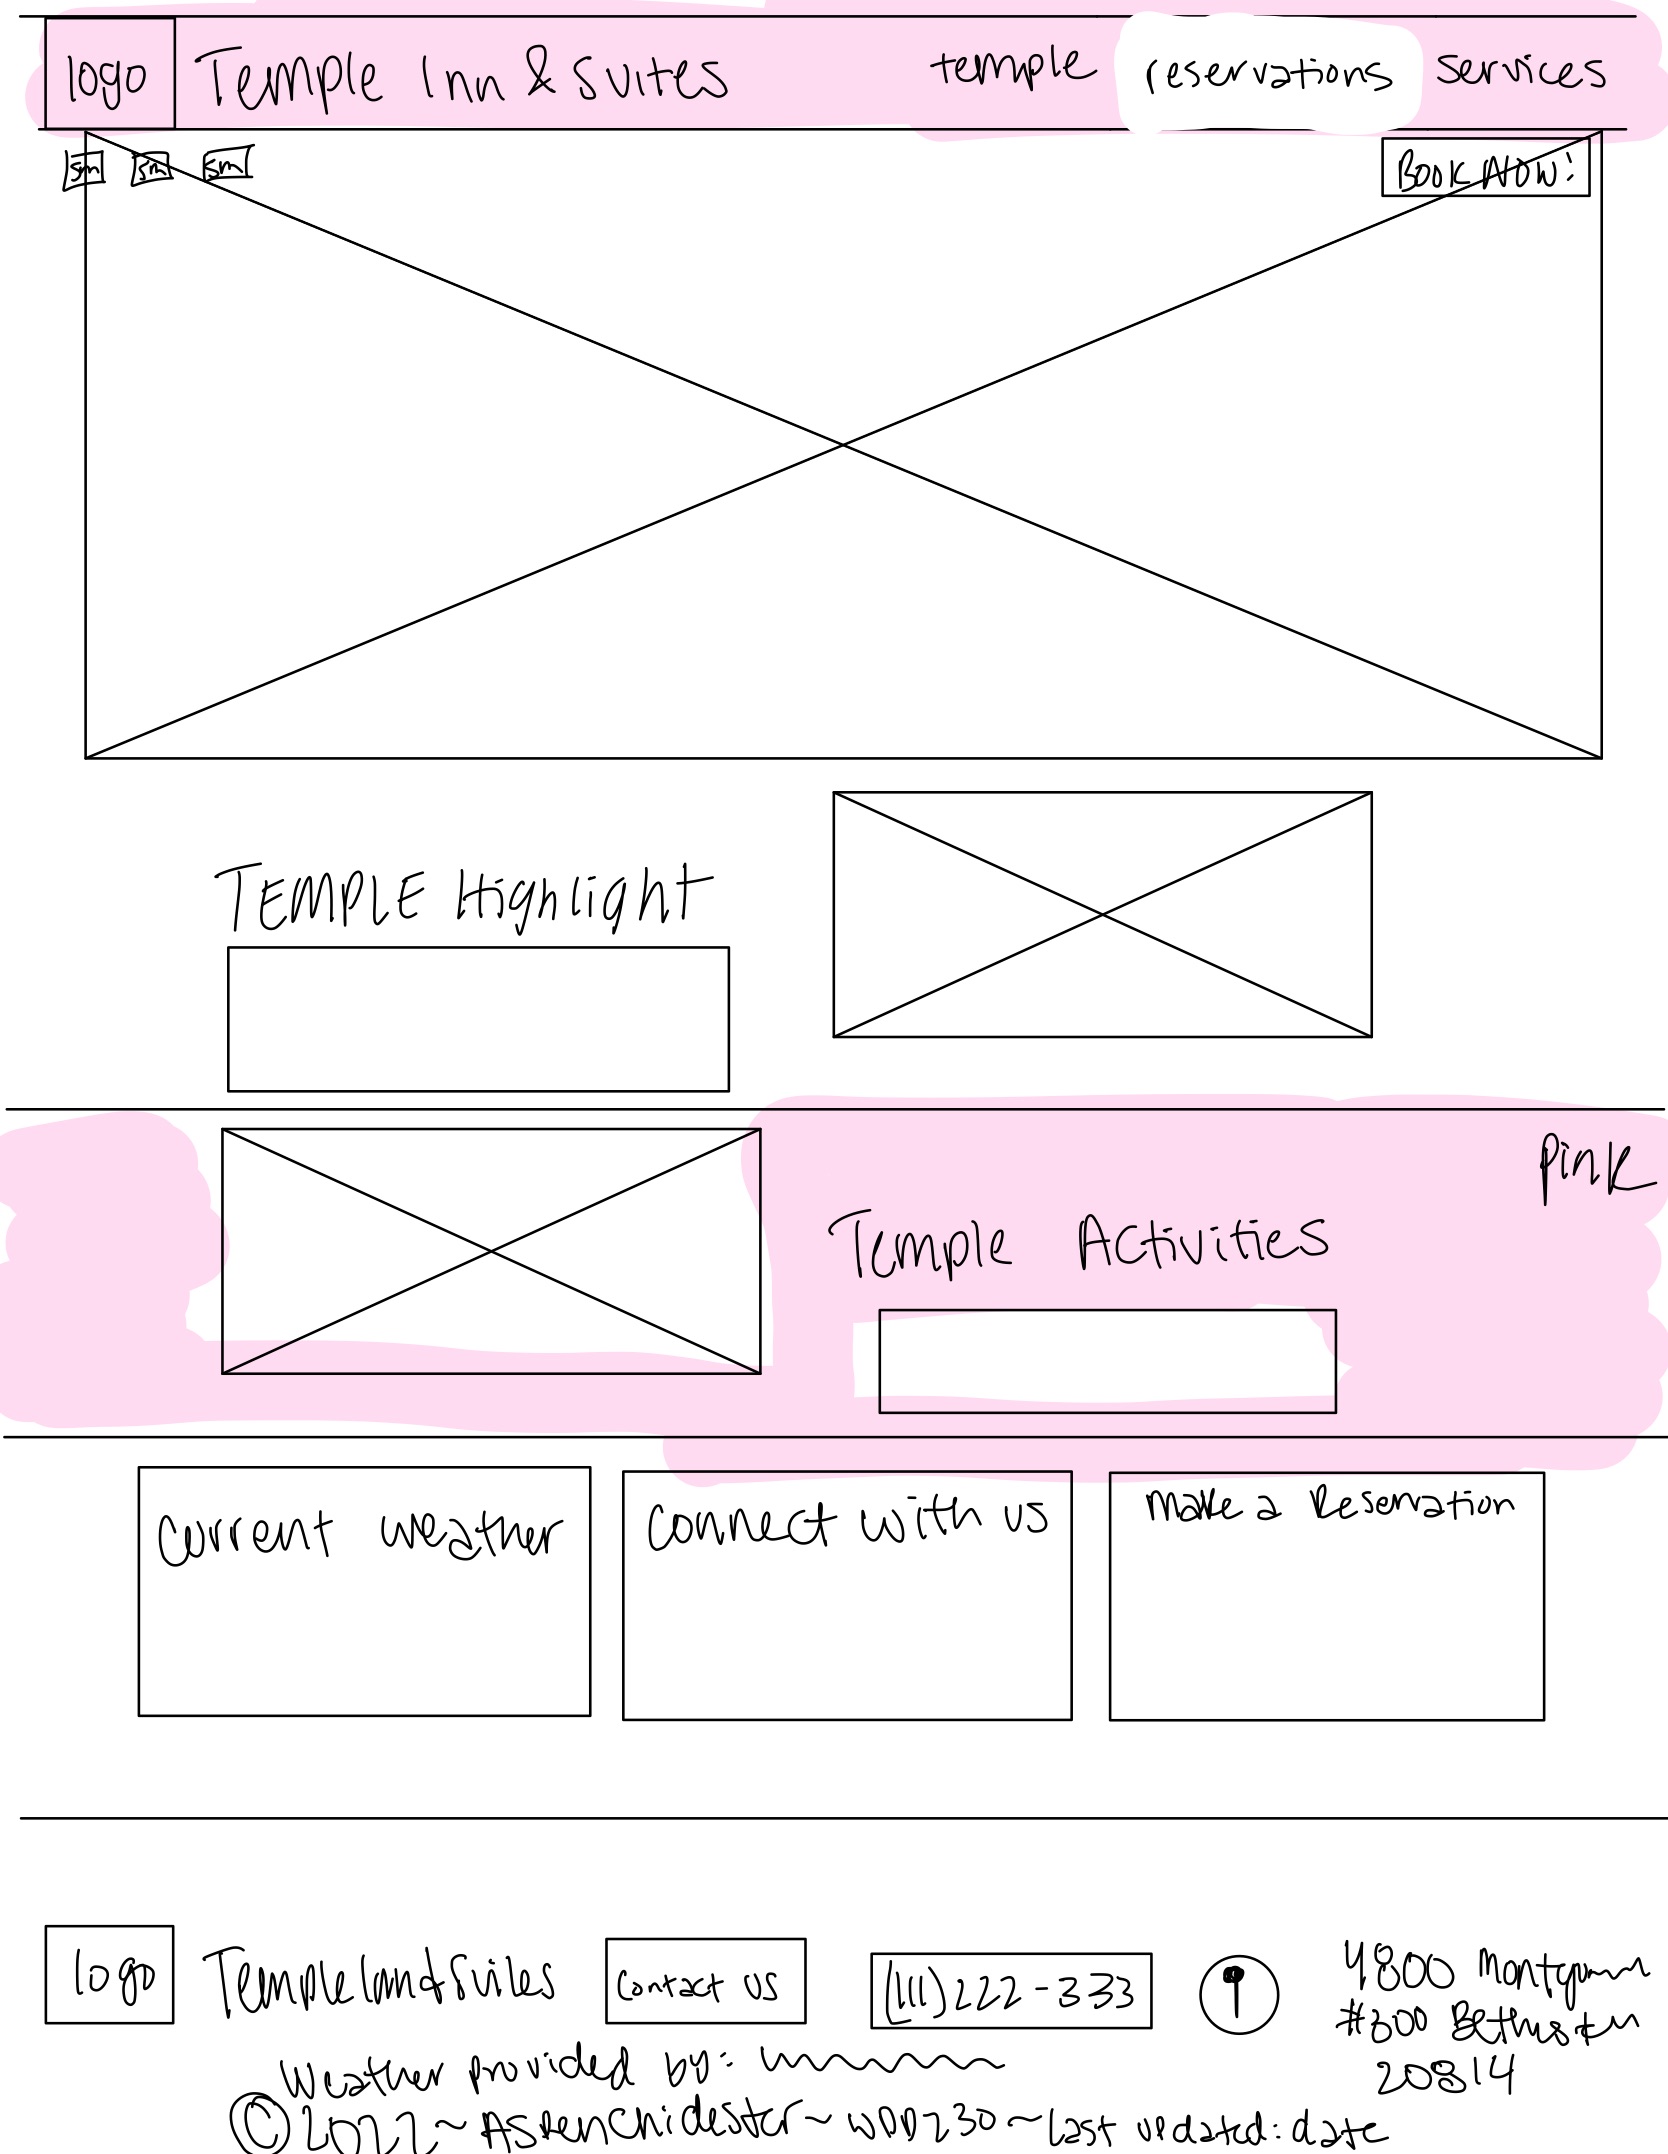 logo Temple Inn & Suites temple reservations services
sm sm sm Book Now!
TEMPLE Highlight
pink
Temple Activities
current weather
connect with us
make a Reservation
logo Temple Inn & Suites
contact us
(111)222-333
4800
#300
20814
Weather provided by:
©2022~AspenChidester~WDD230~Last updated: date